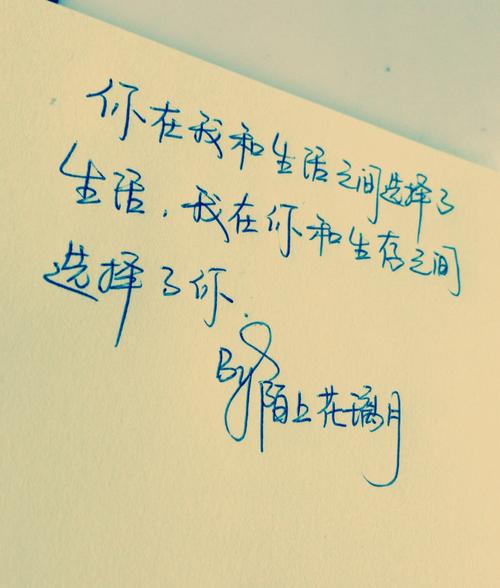 你在我和生活之间选择了
生活，我在你和生存之间
选择了你.
By 陌上花璃月